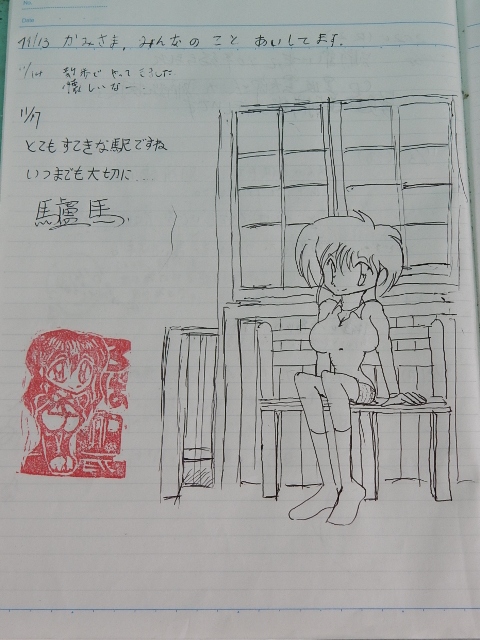 No.
Date
11/13 かみさま、みんなの こと あいしてます.
11/14 散歩で やってきました
懐しいなー…
11/17
とてもすてきな駅ですね
いつまでも大切に…
驢馬